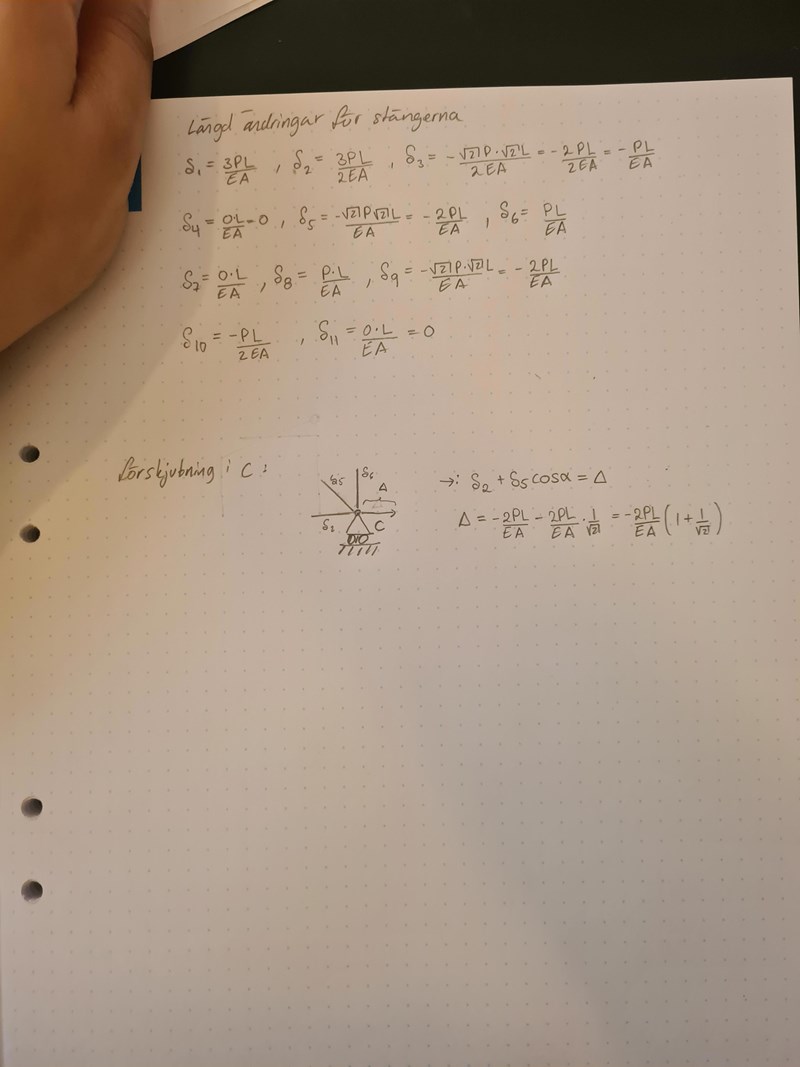 Längd ändringar för stängerna
δ₁ = 3PL/EA , δ₂ = 3PL/2EA , δ₃ = -√2 P·√2 L/2EA = -2PL/2EA = -PL/EA
δ₄ = 0·L/EA = 0 , δ₅ = -√2 P√2 L/EA = -2PL/EA , δ₆ = PL/EA
δ₇ = 0·L/EA , δ₈ = P·L/EA , δ₉ = -√2 P·√2 L/EA = -2PL/EA
δ₁₀ = -PL/2EA , δ₁₁ = 0·L/EA = 0
förskjutning i C:
δ₅ δ₆ Δ
δ₂ C
→: δ₂ + δ₅ cosα = Δ
Δ = -2PL/EA - 2PL/EA · 1/√2 = -2PL/EA (1 + 1/√2)